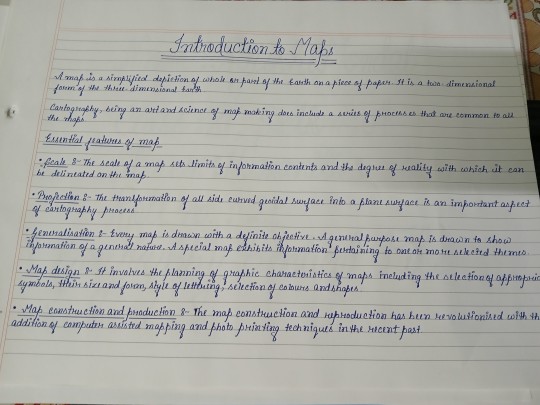 Introduction to Maps
A map is a simplified depiction of whole or part of the Earth on a piece of paper. It is a two-dimensional
form of the three-dimensional Earth.
Cartography, being an art and science of map making does include a series of processes that are common to all
the maps.
Essential features of map
• Scale :- The scale of a map sets limits of information contents and the degree of reality with which it can
be delineated on the map
• Projection :- The transformation of all side curved geoidal surface into a plane surface is an important aspect
of cartography process
• Generalisation :- Every map is drawn with a definite objective. A general purpose map is drawn to show
information of a general nature. A special map exhibits information pertaining to one or more selected themes.
• Map design :- It involves the planning of graphic characteristics of maps including the selection of appropric
symbols, their size and form, style of lettering, selection of colours and shapes
• Map construction and production :- The map construction and reproduction has been revolutionised with th
addition of computer assisted mapping and photo printing techniques in the recent past.